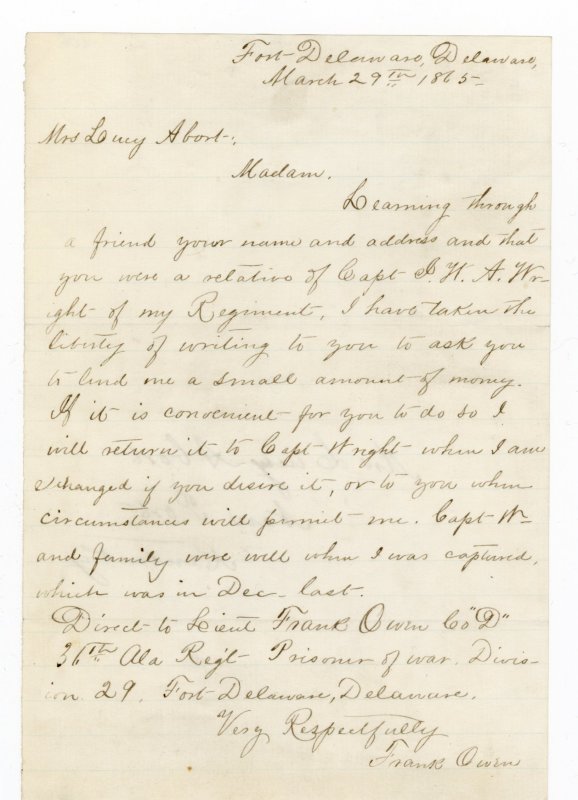 Fort Delaware, Delaware,
March 29th 1865
Mrs Lucy Abort,
Madam.
Learning through
a friend your name and address and that
you were a relative of Capt J. H. A. Wr-
ight of my Regiment, I have taken the
liberty of writing to you to ask you
to lend me a small amount of money.
If it is convenient for you to do so I
will return it to Capt Wright when I am
exchanged if you desire it, or to you when
circumstances will permit me. Capt W-
and family were well when I was captured,
which was in Dec- last.
Direct to Lieut Frank Owen Co "D"
36th Ala Regt Prisoner of war. Divis-
ion 29. Fort Delaware, Delaware.
Very Respectfully
Frank Owen